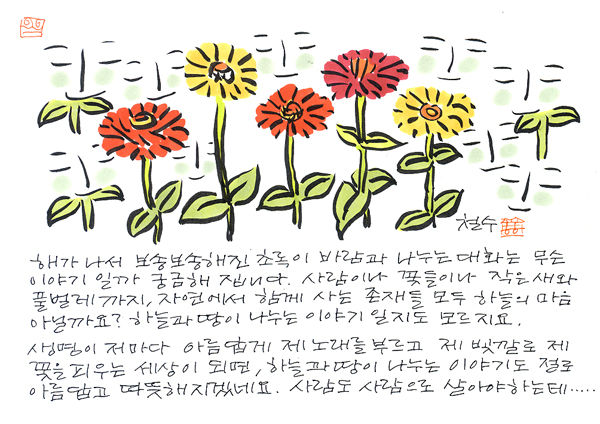 철수
해가 나서 보송보송해진 초록이 바람과 나누는 대화는 무슨
이야기 일까 궁금해 집니다. 사람이나 꽃들이나 작은새와
풀벌레까지, 자연에서 함께 사는 존재들 모두 하늘의 마음
아닐까요? 하늘과 땅이 나누는 이야기 일지도 모르지요.
생명이 저마다 아름답게 제 노래를 부르고 제 빛깔로 제
꽃을 피우는 세상이 되면, 하늘과 땅이 나누는 이야기도 절로
아름답고 따뜻해지겠네요. 사람도 사람으로 살아야하는데.....